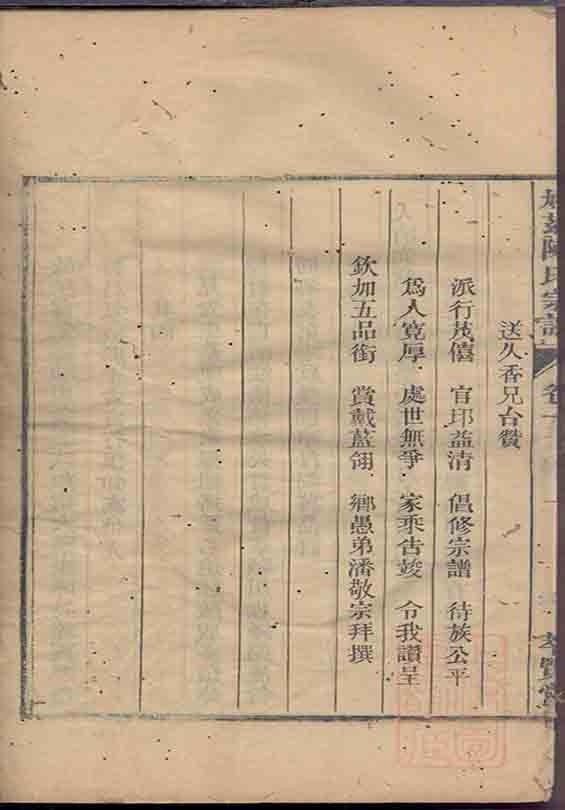 陳氏宗譜
送久香兄台贊
派行茂僖 官印益清 倡修宗譜 待族公平
爲人寬厚 處世無爭 家乘告竣 令我讚呈
欽加五品銜 賞戴藍翎 鄉愚弟潘敬宗拜撰